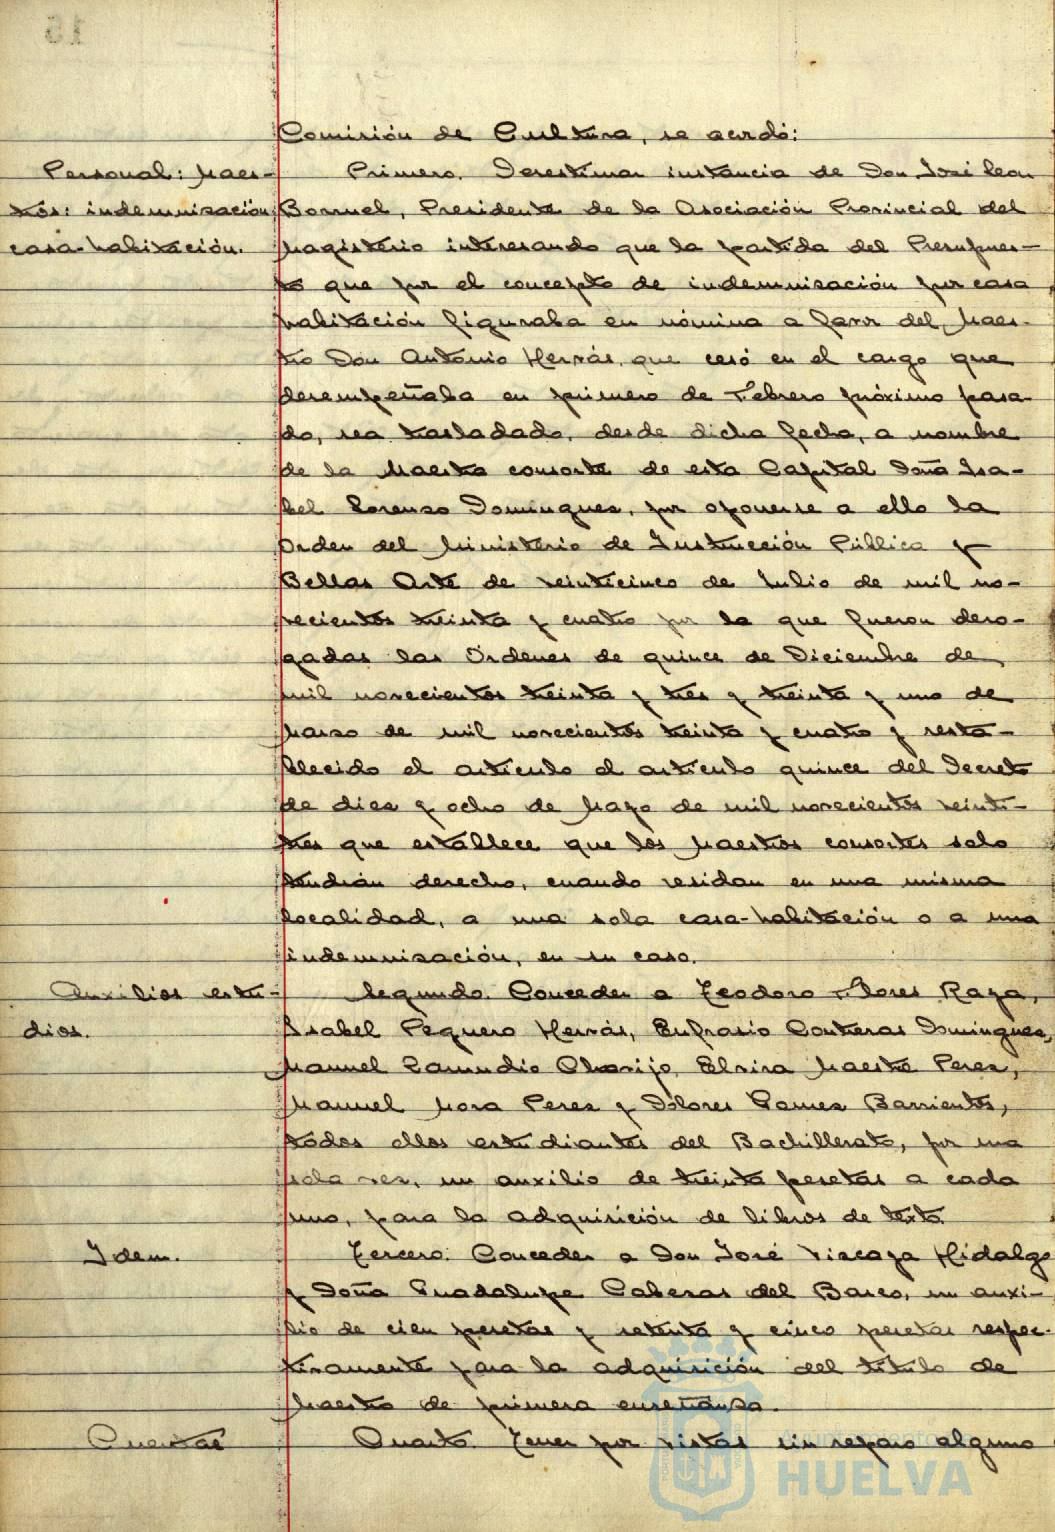 Comisión de Cultura, se acordó:
Personal: Maes-
tros: indemnización
casa-habitación.
Primero. Desestimar instancia de Don José Leon
Borruel, Presidente de la Asociación Provincial del
Magisterio interesando que la partida del Presupues-
to que por el concepto de indemnización por casa
habitación figuraba en nómina a favor del Maes-
tro Don Antonio Hervás, que cesó en el cargo que
desempeñaba en primero de Febrero próximo pasa-
do, sea trasladado, desde dicha fecha, a nombre
de la Maestra consorte de esta Capital Doña Isa-
bel Lorenzo Dominguez, por oponerse a ello la
Orden del Ministerio de Instrucción Pública y
Bellas Arte de veinticinco de Julio de mil no-
vecientos treinta y cuatro por la que fueron dero-
gadas las Órdenes de quince de Diciembre de
mil novecientos treinta y tres y treinta y uno de
Marzo de mil novecientos treinta y cuatro y resta-
blecido el artículo el artículo quince del Decreto
de diez y ocho de Mayo de mil novecientos veinti-
tres que establece que los Maestros consortes solo
tendrán derecho, cuando residan en una misma
localidad, a una sola casa-habitación o a una
indemnización, en su caso.
Auxilios estu-
dios.
Segundo. Conceder a Teodoro Flores Raya,
Isabel Peguero Hervás, Eufrasio Contreras Dominguez,
Manuel Zamudio Elvira Maestre Perez,
Manuel Mora Perez y Dolores Gamez Barrientos,
todos ellos estudiantes del Bachillerato, por una
sola vez, un auxilio de treinta pesetas a cada
uno, para la adquisición de libros de texto.
Idem.
Tercero. Conceder a Don José Vizcaya Hidalgo
y Doña Guadalupe Cabezas del Barco, un auxi-
lio de cien pesetas y setenta y cinco pesetas respec-
tivamente para la adquisición del título de
Maestro de primera enseñanza.
Cuentas
Cuarto. Tener por vistas sin reparo alguno
Ayuntamiento de
HUELVA